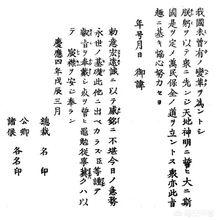 我國未曾有ノ變革ヲ為ントシ
朕躬ヲ以テ衆ニ先ンシ天地神明ニ誓ヒ大ニ斯
國是ヲ定メ萬民保全ノ道ヲ立ントス衆亦此旨
趣ニ基キ協心努力セヨ
年号月日 御諱
勅意宏遠誠ニ以テ感銘ニ不堪今日ノ急務
永世ノ基礎此他ニ出ベカラズ臣等謹テ
叡旨ヲ奉戴シ死ヲ誓ヒ黽勉從事冀クハ以
宸襟ヲ安シ奉ラン
慶應四年戊辰三月
總裁 名印
公卿
諸侯 各名印